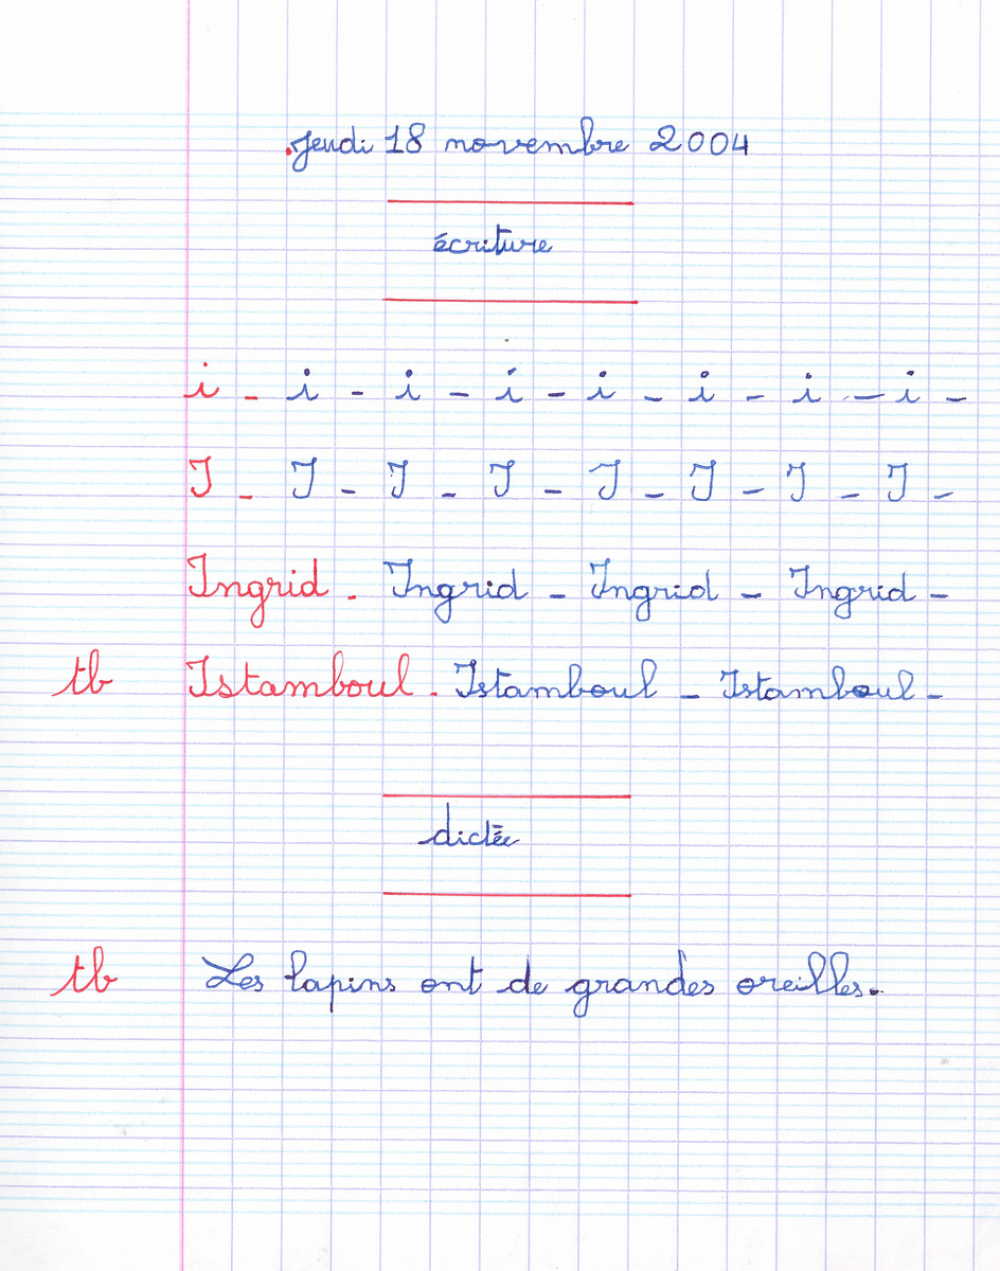 .Jeudi 18 novembre 2004
écriture
i - i - i - i - i - i - i - i -
I - I - I - I - I - I - I - I -
Ingrid . Ingrid - Ingrid - Ingrid -
tb Istamboul . Istamboul - Istamboul -
dictée
tb Les lapins ont de grandes oreilles.